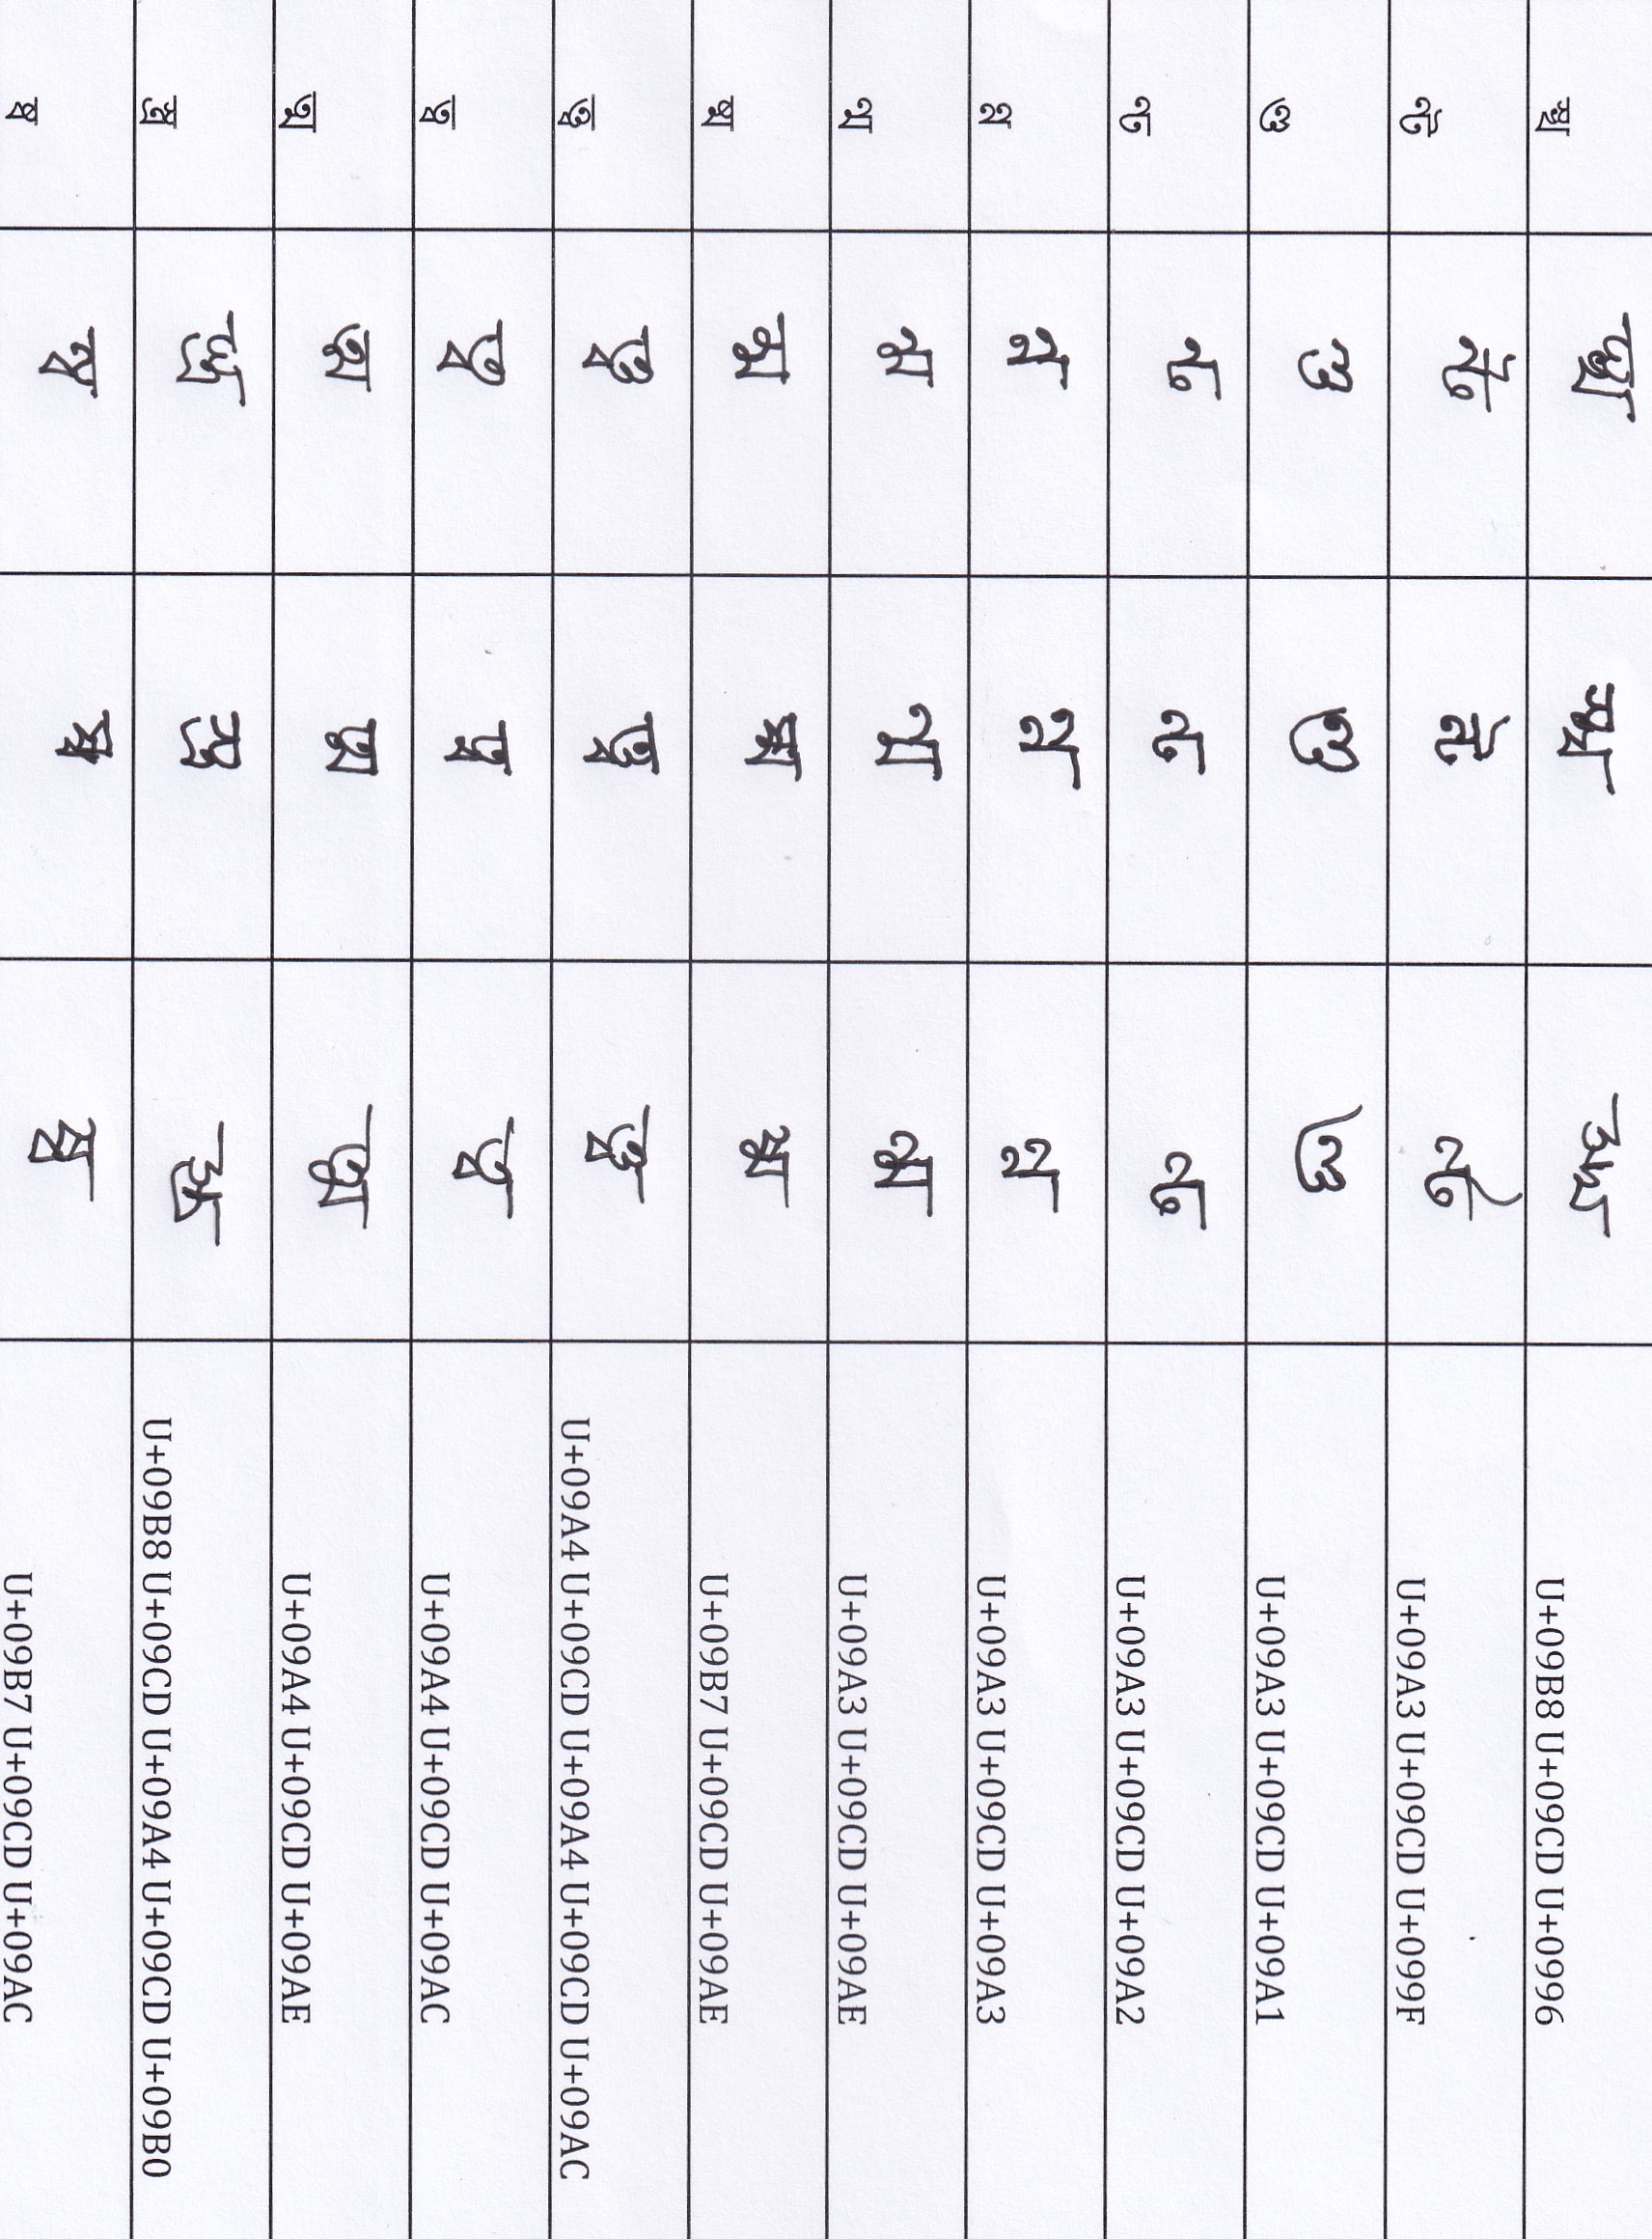 স্খ স্খ স্খ স্খ U+09B8 U+09CD U+0996
ণ্ট ণ্ট ণ্ট ণ্ট U+09A3 U+09CD U+099F
ণ্ড ণ্ড ণ্ড ণ্ড U+09A3 U+09CD U+09A1
ণ্ঢ ণ্ঢ ণ্ঢ ণ্ঢ U+09A3 U+09CD U+09A2
ণ্ণ ণ্ণ ণ্ণ ণ্ণ U+09A3 U+09CD U+09A3
ণ্ম ণ্ম ণ্ম ণ্ম U+09A3 U+09CD U+09AE
ষ্ম ষ্ম ষ্ম ষ্ম U+09B7 U+09CD U+09AE
ত্ত্ব ত্ত্ব ত্ত্ব ত্ত্ব U+09A4 U+09CD U+09A4 U+09CD U+09AC
ত্ব ত্ব ত্ব ত্ব U+09A4 U+09CD U+09AC
ত্ম ত্ম ত্ম ত্ম U+09A4 U+09CD U+09AE
স্ত্র স্ত্র স্ত্র স্ত্র U+09B8 U+09CD U+09A4 U+09CD U+09B0
ষ্ব ষ্ব ষ্ব ষ্ব U+09B7 U+09CD U+09AC